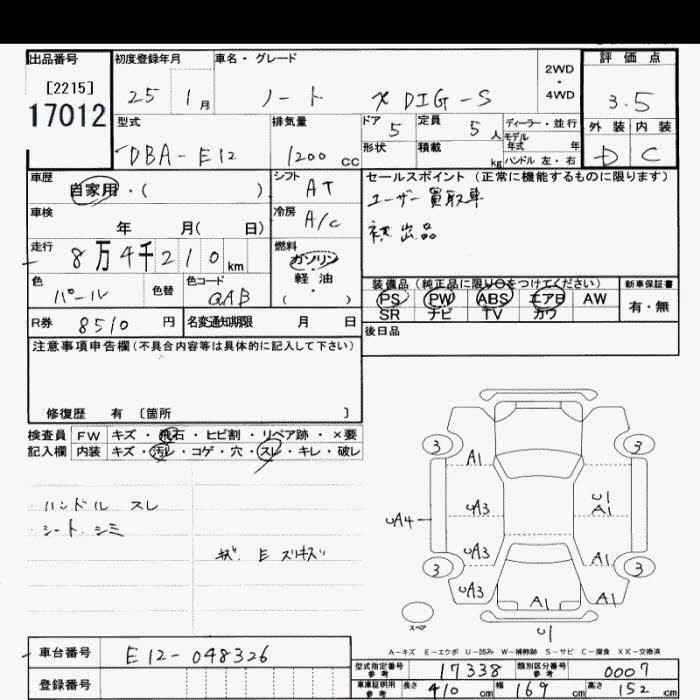 出品番号 初度登録年月 車名・グレード 評価点
[2215]
17012
25 1月 ノート X DIG-S 2WD・4WD 3.5
型式 排気量 ドア 5 定員 5人 ディーラー・並行 外装 内装
モデル年式 年
DBA-E12 1200cc 形状 積載 kg ハンドル 左・右 D C
車歴 自家用・( ) シフト AT セールスポイント(正常に機能するものに限ります)
ユーザー買取車
車検 年 月( 日) 冷房 A/C
初出品
走行 8万4千210km 燃料 ガソリン
軽油
( )
色 パール 色替 色コード QAB 装備品(純正品に限り○をつけてください) 新車保証書
PS PW ABS エアB AW 有・無
SR ナビ TV カワ
R券 8510円 名変通知期限 月 日 後日品
注意事項申告欄(不具合内容等は具体的に記入して下さい)
修復歴 有 [箇所 ]
検査員 FW キズ・飛石・ヒビ割・リペア跡・×要
記入欄 内装 キズ・汚レ・コゲ・穴・スレ・キレ・破レ
ハンドル スレ
シート シミ
キズ E
3 3
A1
UA3 U1
A1
UA4
UA3 A1
3 3
UA3 A1 A1
スペア
U1
A-キズ E-エクボ U-凹み W-補修跡 S-サビ C-腐食 XX-交換済
車台番号 E12-048326
型式指定番号 参考 17338 類別区分番号 参考 0007
登録番号 車庫証明用 参考 長さ 410cm 幅 169cm 高さ 152cm